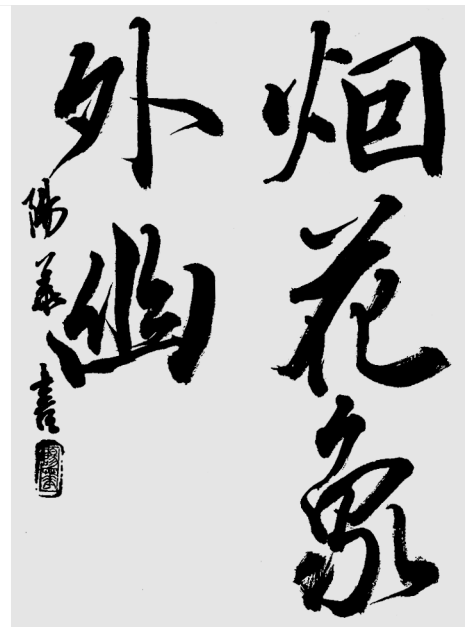 烟花象
外幽
陽 書